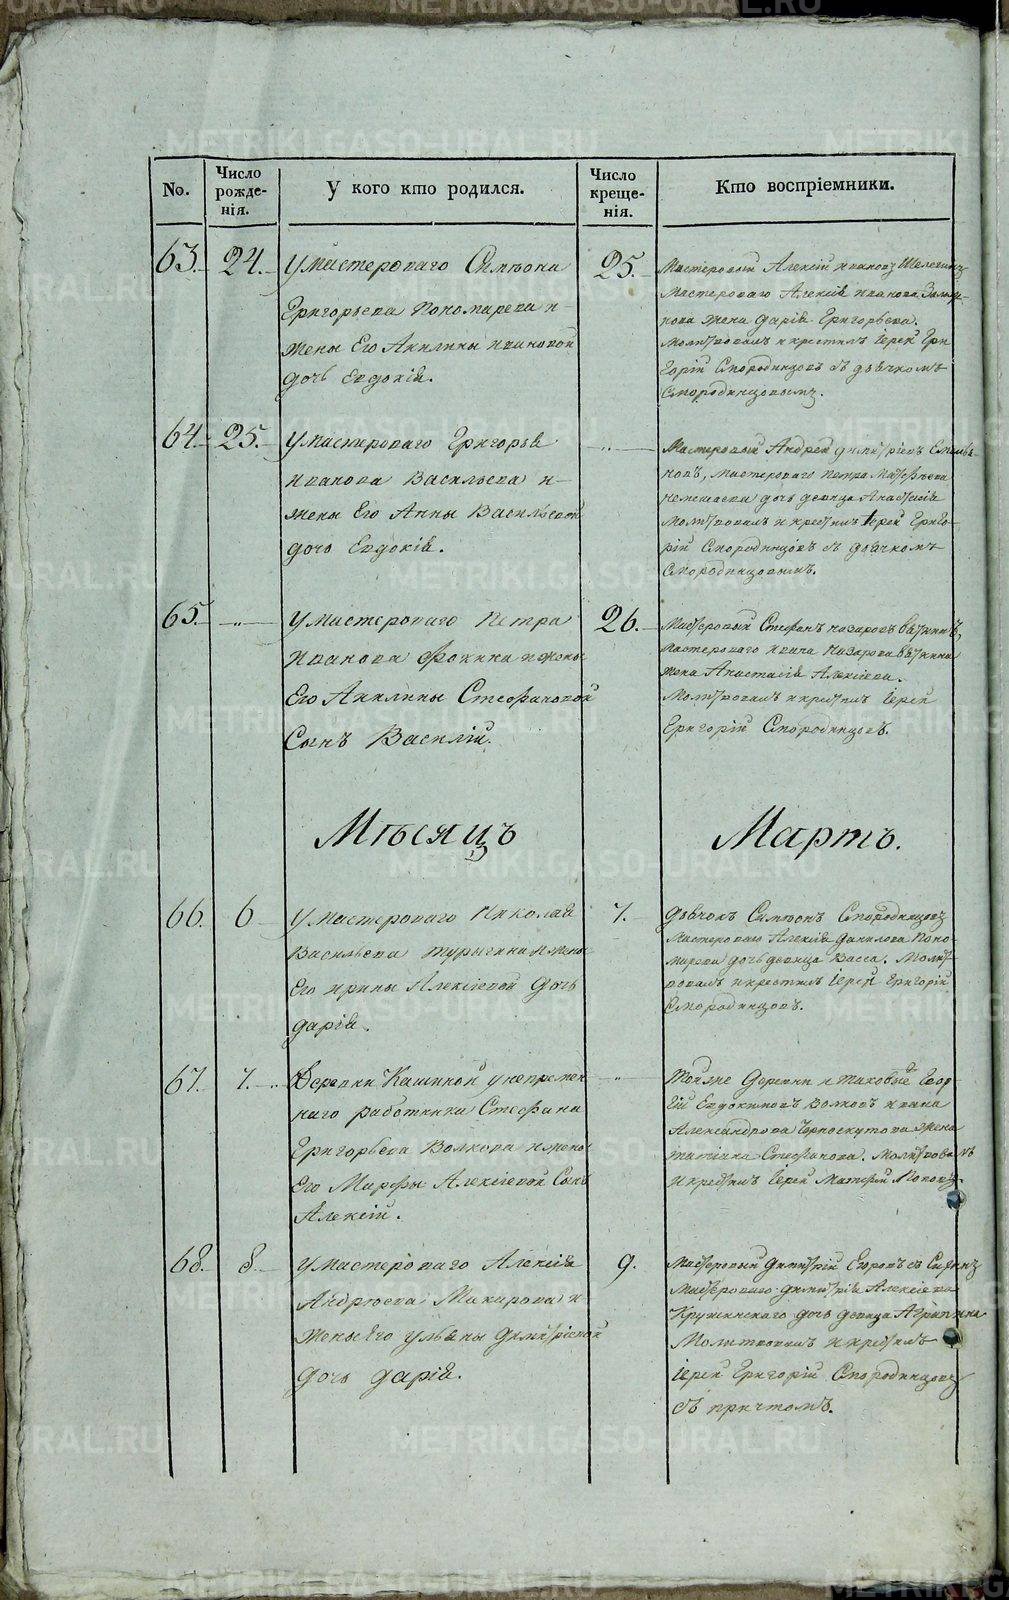 No.
Число рожде-нія.
У кого кто родился.
Число креще-нія.
Кто воспріемники.
63.
24.
У Мастероваго Симеона
Григорьева Пономарева и
жены Его Акилины Ивановой
дочь Евдокія.
25.
Мастеровый Алексій Ивановъ
Мастероваго Алексія Иванова
жена Дарія Григорьева.
Молитвовалъ и крестилъ Іерей Гри
горій Смородинцовъ съ дьячкомъ
Смородинцовымъ.
64.
25.
У Мастероваго Григорья
Иванова Васильева и
жены Его Анны Васильевой
дочь Евдокія.
Мастеровый Андрей Димитріевъ
мастероваго Петра
дочь девица Анастасія
Молитвовалъ и крестилъ Іерей Григо-
рій Смородинцовъ съ дьячкомъ
Смородинцовымъ.
65.
У Мастероваго Петра
Иванова Фокина и жены
Его Акилины Стефановой
Сынъ Василій.
26.
Мастеровый Стефанъ Назаровъ
Мастероваго Ивана Назарова
жена Анастасія Алексіева.
Молитвовалъ и крестилъ Іерей
Григорій Смородинцовъ.
Мѣсяцъ
Мартъ.
66.
6
У Мастероваго Николая
Васильева Турыгина и жены
Его Ирины Алексіевой дочь
Дарія.
7.
Дьячокъ Симеонъ Смородинцовъ
Мастероваго Алексія Данилова Поно-
марева дочь девица Васса. Молит-
вовалъ и крестилъ Іерей Григорій
Смородинцовъ.
67.
7.
Деревни Кашиной у непремен
наго работника Стефана
Григорьева Волкова и жены
Его Марфы Алексіевой Сынъ
Алексій.
Тойже деревни и таковые Геор-
гій Евдокимовъ Волковъ Ивана
Александрова Черноскутова жена
Татіана Стефанова. Молитвовалъ
и крестилъ Іерей Матфей Поповъ.
68.
8.
У Мастероваго Алексія
Андреева Макарова и
жены Его Ульяны Димитріевой
дочь Дарія.
9.
Мастеровый Димитрій Егоровъ
Мастероваго Димитрія Алексіева
Крушинскаго дочь девица Агрипина
Молитвовалъ и крестилъ
Іерей Григорій Смородинцовъ
съ причтомъ.
METRIKI.GASO-URAL.RU